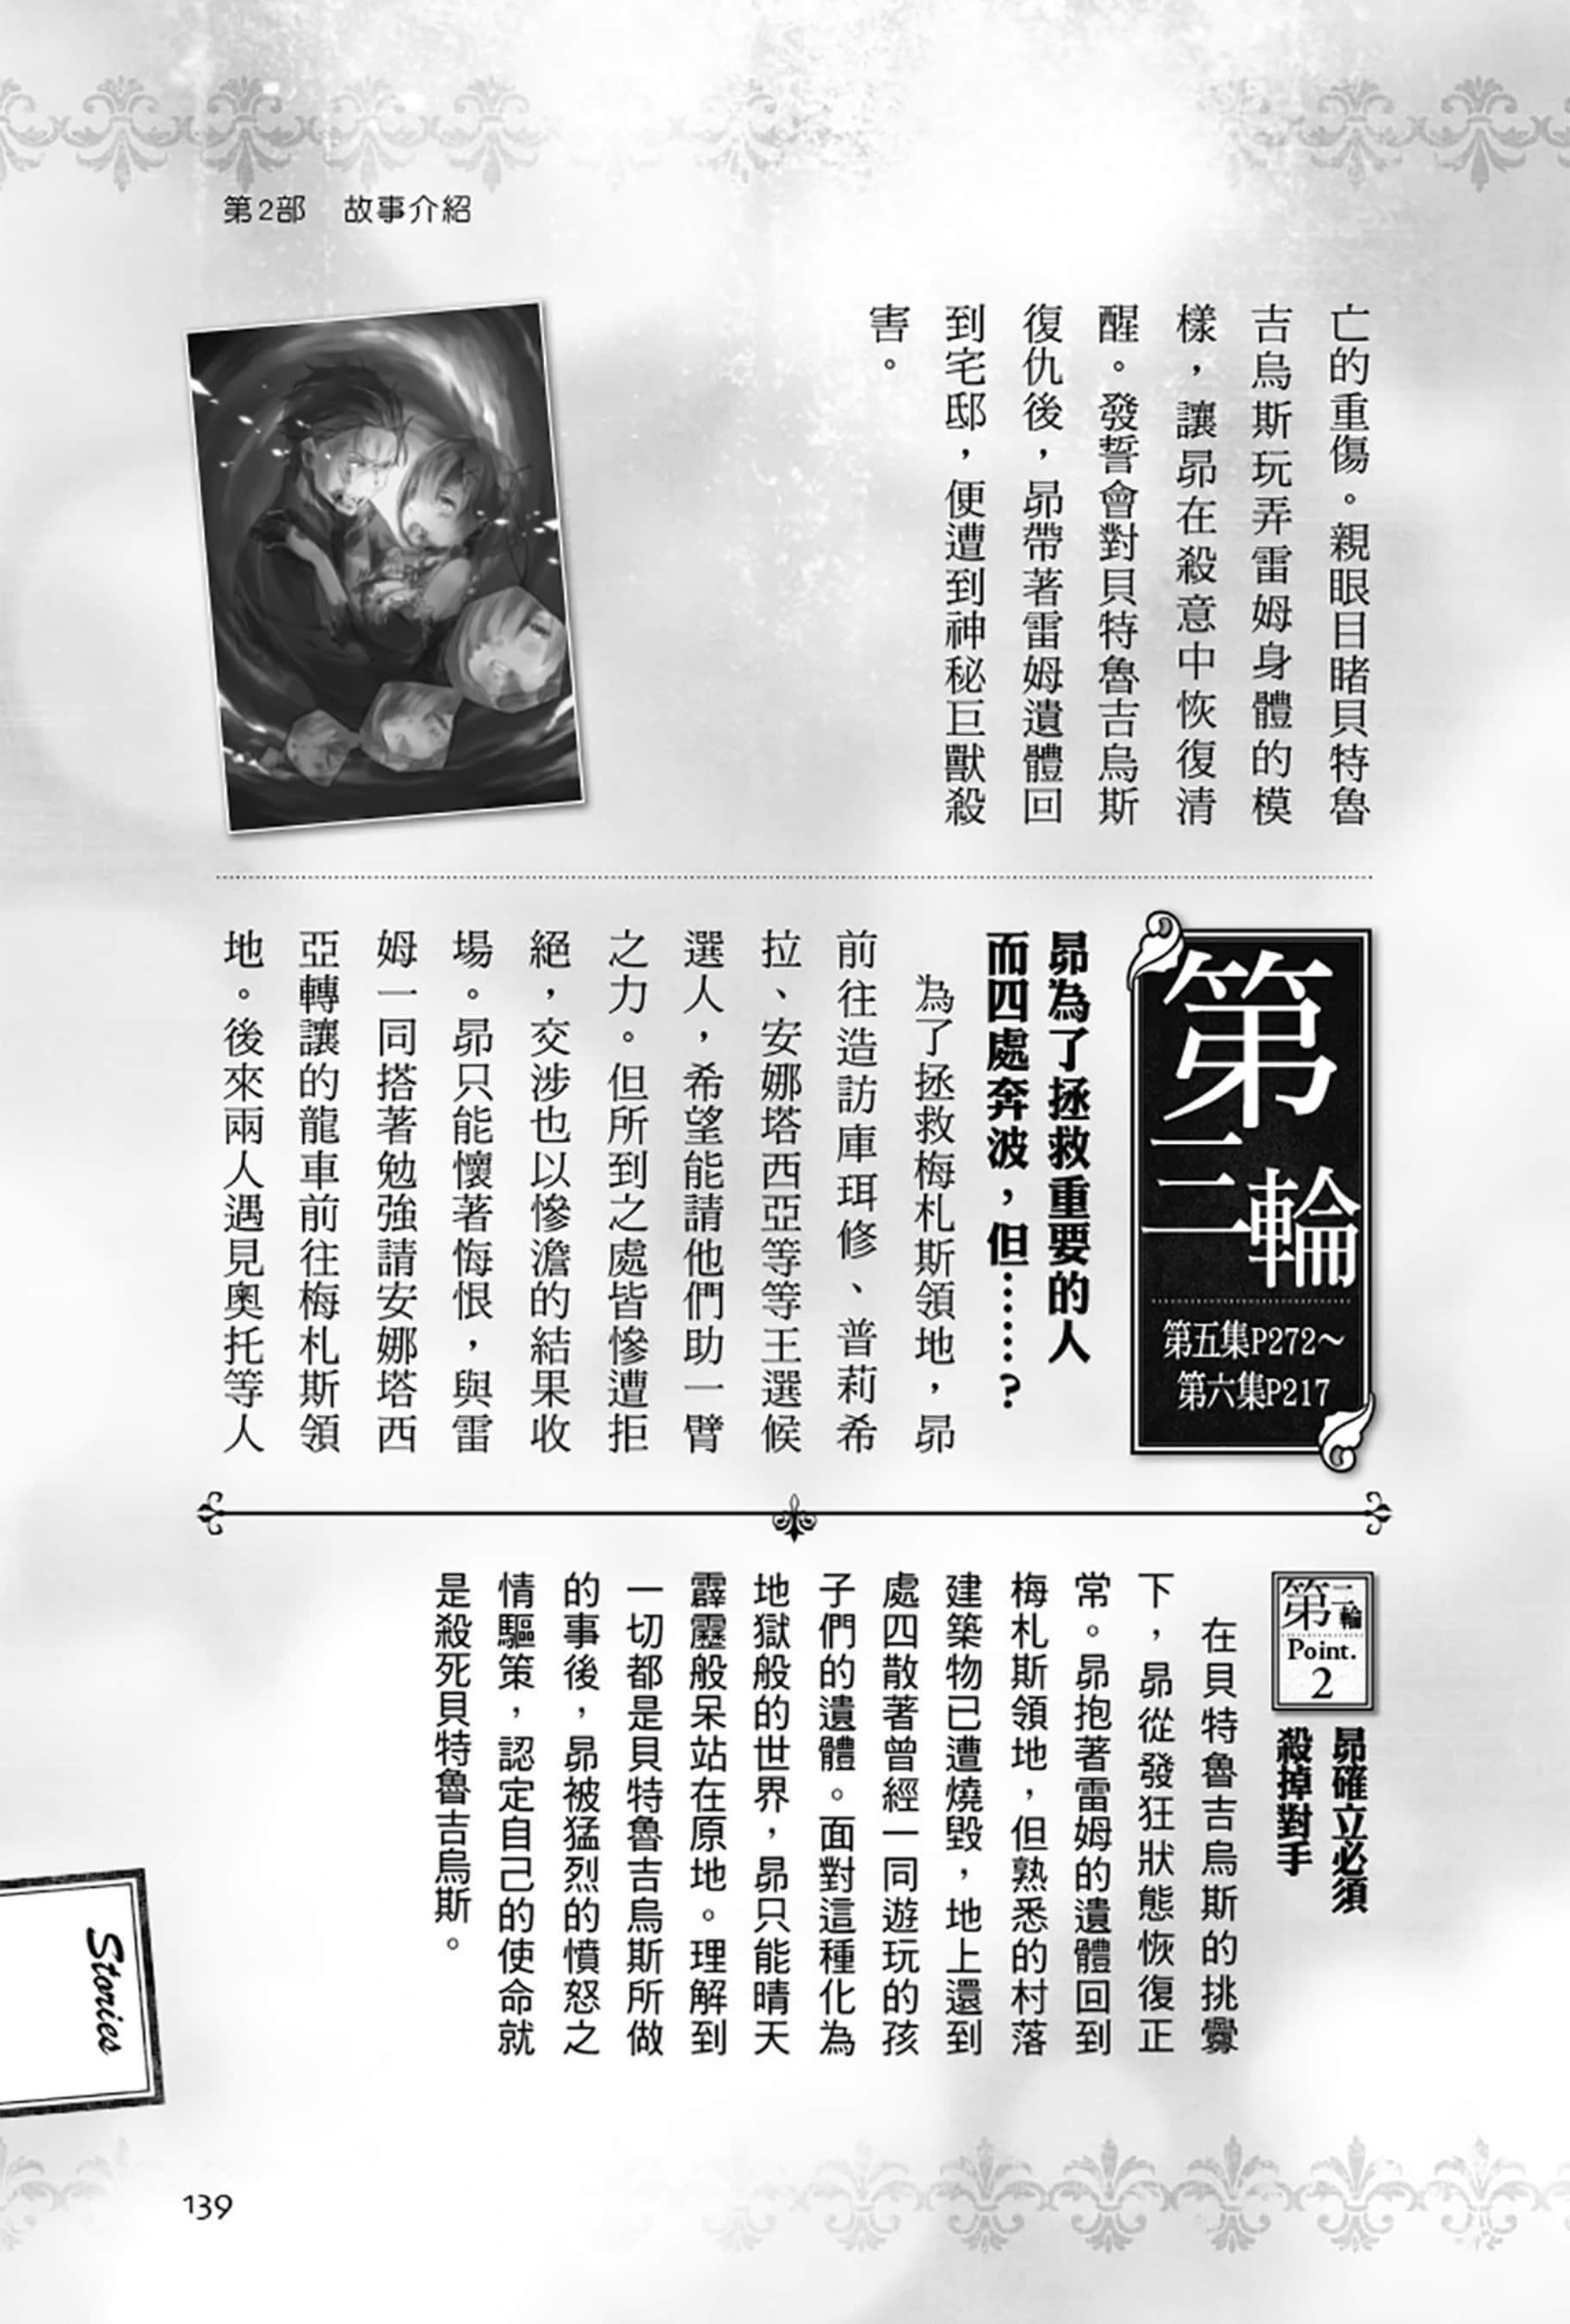 第2部　故事介紹
亡的重傷。親眼目睹貝特魯
吉烏斯玩弄雷姆身體的模
樣，讓昴在殺意中恢復清
醒。發誓會對貝特魯吉烏斯
復仇後，昴帶著雷姆遺體回
到宅邸，便遭到神秘巨獸殺
害。
第三輪
第五集P272～
第六集P217
昴為了拯救重要的人
而四處奔波，但……？
為了拯救梅札斯領地，昴
前往造訪庫珥修、普莉希
拉、安娜塔西亞等等王選候
選人，希望能請他們助一臂
之力。但所到之處皆慘遭拒
絕，交涉也以慘澹的結果收
場。昴只能懷著悔恨，與雷
姆一同搭著勉強請安娜塔西
亞轉讓的龍車前往梅札斯領
地。後來兩人遇見奧托等人
第二輪
Point.
2
昴確立必須
殺掉對手
在貝特魯吉烏斯的挑釁
下，昴從發狂狀態恢復正
常。昴抱著雷姆的遺體回到
梅札斯領地，但熟悉的村落
建築物已遭燒毀，地上還到
處四散著曾經一同遊玩的孩
子們的遺體。面對這種化為
地獄般的世界，昴只能晴天
霹靂般呆站在原地。理解到
一切都是貝特魯吉烏斯所做
的事後，昴被猛烈的憤怒之
情驅策，認定自己的使命就
是殺死貝特魯吉烏斯。
Stories
139